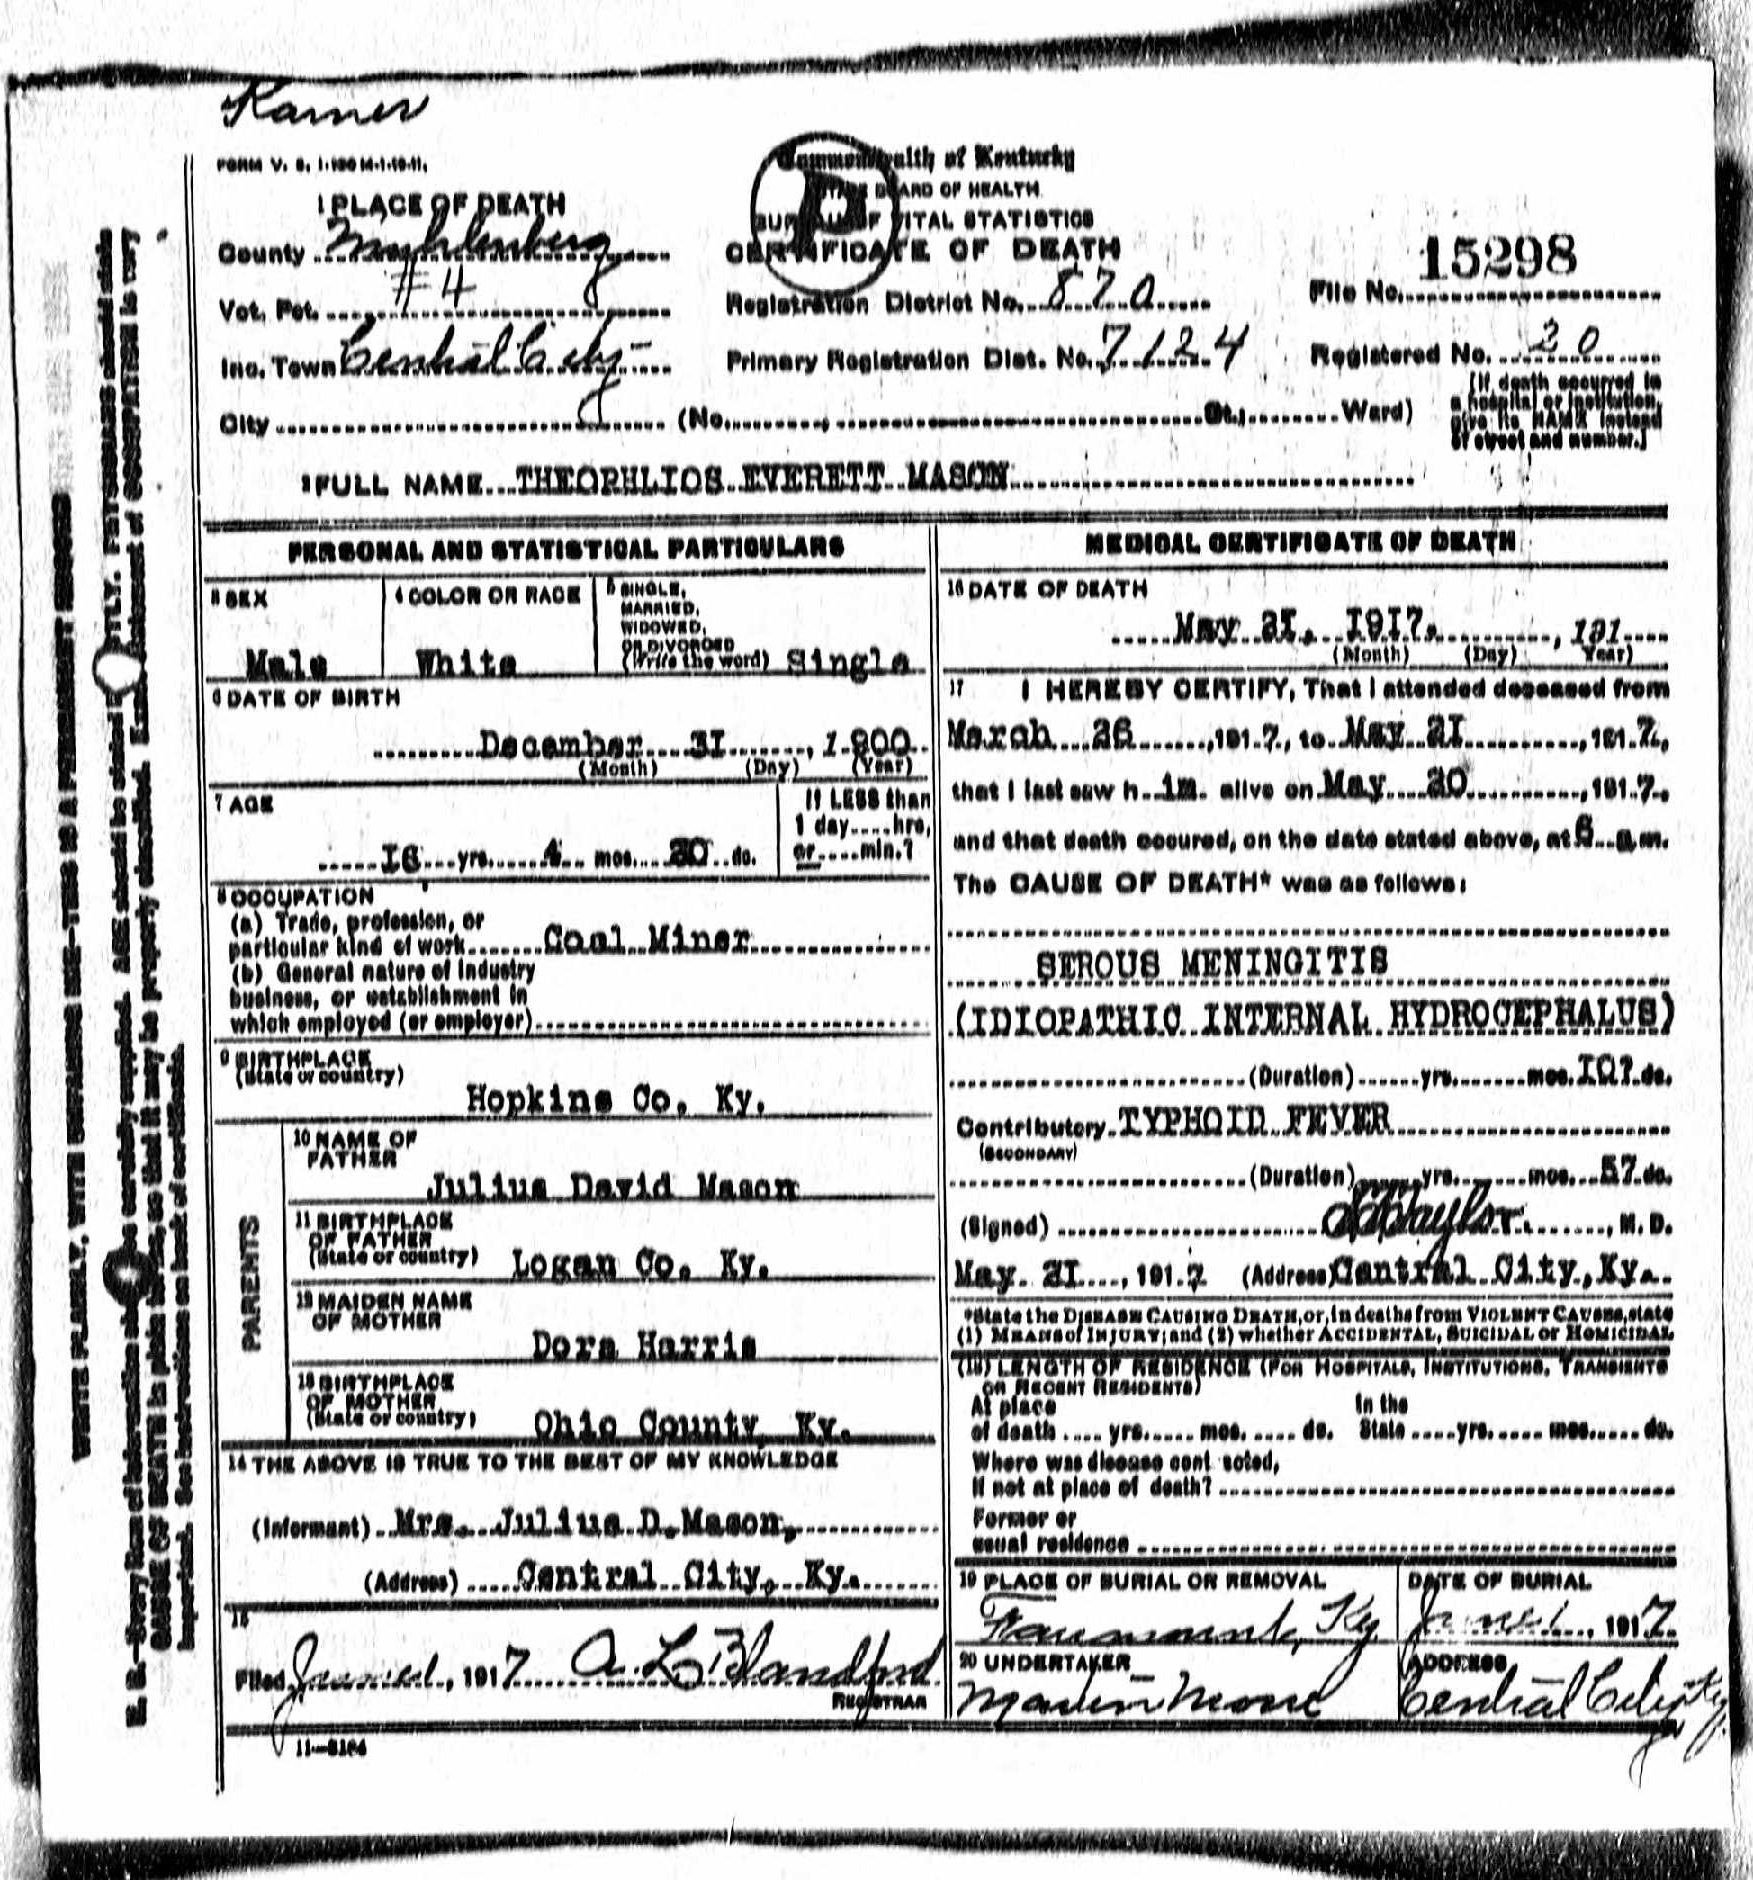 Karner
FORM V. S. 1-100 M-1-10-11.
1 PLACE OF DEATH
County Muhlenberg
Vot. Pct. #4
Inc. Town Central City
City (No. St.; Ward)
Commonwealth of Kentucky
STATE BOARD OF HEALTH
BUREAU OF VITAL STATISTICS
CERTIFICATE OF DEATH
Registration District No. 870
Primary Registration Dist. No. 7124
15298
File No.
Registered No. 20
[If death occurred in
a hospital or institution,
give its NAME instead
of street and number.]
2 FULL NAME THEOPHLIOS EVERETT MASON
PERSONAL AND STATISTICAL PARTICULARS
3 SEX
Male
4 COLOR OR RACE
White
5 SINGLE,
MARRIED,
WIDOWED,
OR DIVORCED
(Write the word) Single
6 DATE OF BIRTH
December 3I, 1 900
(Month) (Day) (Year)
7 AGE
I6 yrs. 4 mos. 20 ds.
If LESS than
1 day....hrs,
or....min.?
8 OCCUPATION
(a) Trade, profession, or
particular kind of work Coal Miner
(b) General nature of industry
business, or establishment in
which employed (or employer)
9 BIRTHPLACE
(State or country)
Hopkins Co. Ky.
PARENTS
10 NAME OF
FATHER
Julius David Mason
11 BIRTHPLACE
OF FATHER
(State or country) Logan Co. Ky.
12 MAIDEN NAME
OF MOTHER
Dora Harris
13 BIRTHPLACE
OF MOTHER
(State or country) Ohio County Ky.
14 THE ABOVE IS TRUE TO THE BEST OF MY KNOWLEDGE
(Informant) Mrs. Julius D. Mason,
(Address) Central City, Ky.
15
Filed June 1, 1917 A. L. Blandford
REGISTRAR
11—3184
MEDICAL CERTIFICATE OF DEATH
16 DATE OF DEATH
May 2I, I9I7. , 191
(Month) (Day) Year)
17 I HEREBY CERTIFY, That I attended deceased from
March 26, 191 7, to May 2I, 191 7,
that I last saw h im alive on May 20, 191 7,
and that death occured, on the date stated above, at 6 a.m.
The CAUSE OF DEATH* was as follows:
SEROUS MENINGITIS
(IDIOPATHIC INTERNAL HYDROCEPHALUS)
(Duration) yrs. mos. I0? ds.
Contributory TYPHOID FEVER
(SECONDARY)
(Duration) yrs. mos. 57 ds.
(Signed) Taylor, M. D.
May 2I, 191 7 (Address) Central City, Ky.
*State the DISEASE CAUSING DEATH, or, in deaths from VIOLENT CAUSES, state
(1) MEANS of INJURY; and (2) whether ACCIDENTAL, SUICIDAL or HOMICIDAL
(18) LENGTH OF RESIDENCE (FOR HOSPITALS, INSTITUTIONS, TRANSIENTS
OR RECENT RESIDENTS)
At place In the
of death .... yrs. .... mos. .... ds. State .... yrs. .... mos. .... ds.
Where was disease cont acted,
If not at place of death?
Former or
usual residence
19 PLACE OF BURIAL OR REMOVAL
Ky
DATE OF BURIAL
June 1, 1917.
20 UNDERTAKER
Marvin Moore
ADDRESS
Central City Ky.
WRITE PLAINLY, WITH UNFADING INK—THIS IS A PERMANENT RECORD
N. B.—Every item of information should be carefully supplied. AGE should be stated EXACTLY. PHYSICIANS should state
CAUSE OF DEATH in plain terms, so that it may be properly classified. Exact statement of OCCUPATION is very
important. See instructions on back of certificate.